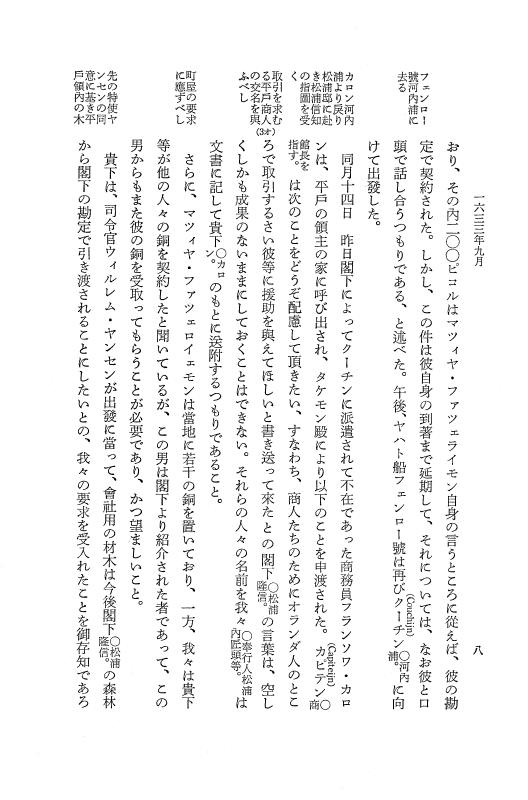 一六三三年九月
八
おり、その內二〇〇ピコルはマツィヤ・ファツェライモン自身の言うところに從えば、彼の勘
定で契約された。しかし、この件は彼自身の到著まで延期して、それについては、なお彼と口
頭で話し合うつもりである、と述べた。午後、ヤハト船フェンロー號は再びクーチン(Couchijn)〇河內浦。に向
けて出發した。
フェンロー
號河內浦に
去る
同月十四日　昨日閣下によってクーチンに派遣されて不在であった商務員フランソワ・カロ
ンは、平戶の領主の家に呼び出され、タケモン殿により以下のことを申渡された。カピテン(Capiteijn)〇商
館長を指す。は次のことをどうぞ配慮して頂きたい、すなわち、商人たちのためにオランダ人のとこ
カロン河內
浦より戾り
松浦邸に赴
き松浦信知
の指圖を受
く
ろで取引するさい彼等に援助を與えてほしいと書き送って來たとの閣下〇松浦隆信。の言葉は、空し
くしかも成果のないままにしておくことはできない。それらの人々の名前を我々〇奉行人松浦內匠頭等。は
文書に記して貴下〇カロン。のもとに送附するつもりであること。
取引を求む
る平戶商人
の交名を與
ふべし
(3オ)
さらに、マツィヤ・ファツェロイェモンは當地に若干の銅を置いており、一方、我々は貴下
等が他の人々の銅を契約したと聞いているが、この男は閣下より紹介された者であって、この
男からもまた彼の銅を受取ってもらうことが必要であり、かつ望ましいこと。
町屋の要求
に應ずべし
貴下は、司令官ウィルレム・ヤンセンが出發に當って、會社用の材木は今後閣下〇松浦隆信。の森林
から閣下の勘定で引き渡されることにしたいとの、我々の要求を受入れたことを御存知であろ
先の特使ヤ
ンセンの同
意に基き平
戶領內の木